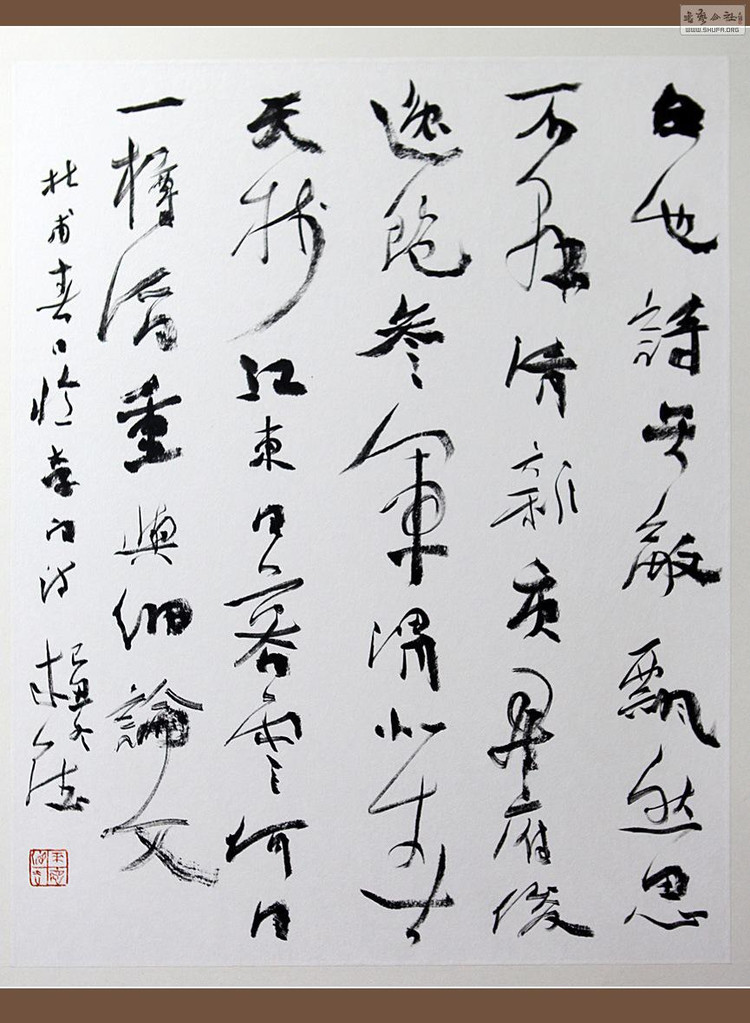 書藝公社
WWW.SHUFA.ORG
白也詩无敵飄然思
不群清新庾開府俊
逸鮑參軍渭北春
天樹江東日暮雲何日
一樽酒重與細論文
杜甫春日憶李白詩
己丑冬